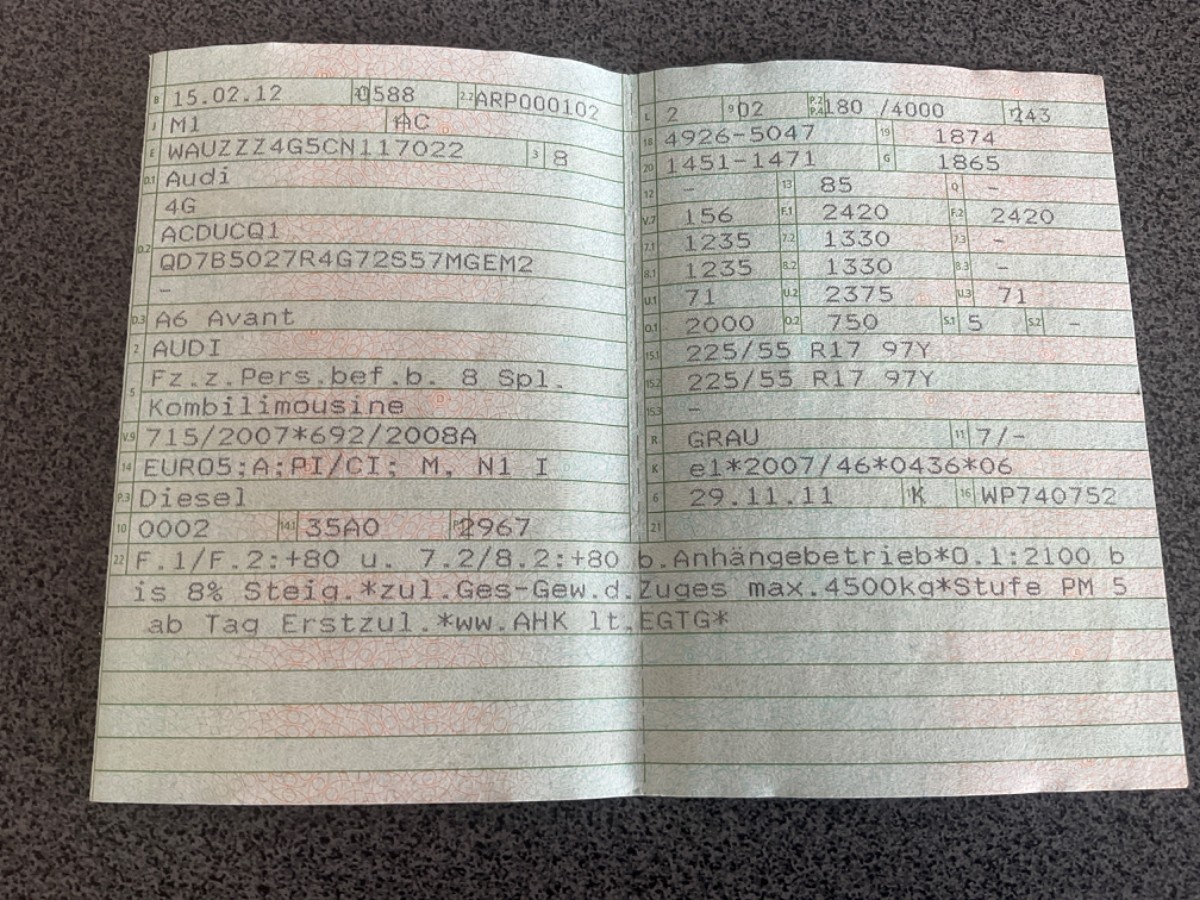 B 15.02.12 2.1 0588 2.2 ARP000102
J M1 4 AC
E WAUZZZ4G5CN117022 3 8
D.1 Audi
4G
D.2 ACDUCQ1
QD7B5027R4G72S57MGEM2
–
D.3 A6 Avant
2 AUDI
5 Fz.z.Pers.bef.b. 8 Spl.
Kombilimousine
V.9 715/2007*692/2008A
14 EURO5;A;PI/CI; M, N1 I
P.3 Diesel
10 0002 14.1 35A0 P.1 2967
L 2 9 02 P.2 P.4 180 /4000 T 243
18 4926-5047 19 1874
20 1451-1471 G 1865
12 – 13 85 Q –
V.7 156 F.1 2420 F.2 2420
7.1 1235 7.2 1330 7.3 –
8.1 1235 8.2 1330 8.3 –
U.1 71 U.2 2375 U.3 71
O.1 2000 O.2 750 S.1 5 S.2 –
15.1 225/55 R17 97Y
15.2 225/55 R17 97Y
15.3 –
R GRAU 11 7/–
K e1*2007/46*0436*06
6 29.11.11 17 K 16 WP740752
21
22 F.1/F.2:+80 u. 7.2/8.2:+80 b.Anhängebetrieb*O.1:2100 b
is 8% Steig.*zul.Ges-Gew.d.Zuges max.4500kg*Stufe PM 5
ab Tag Erstzul.*ww.AHK lt.EGTG*